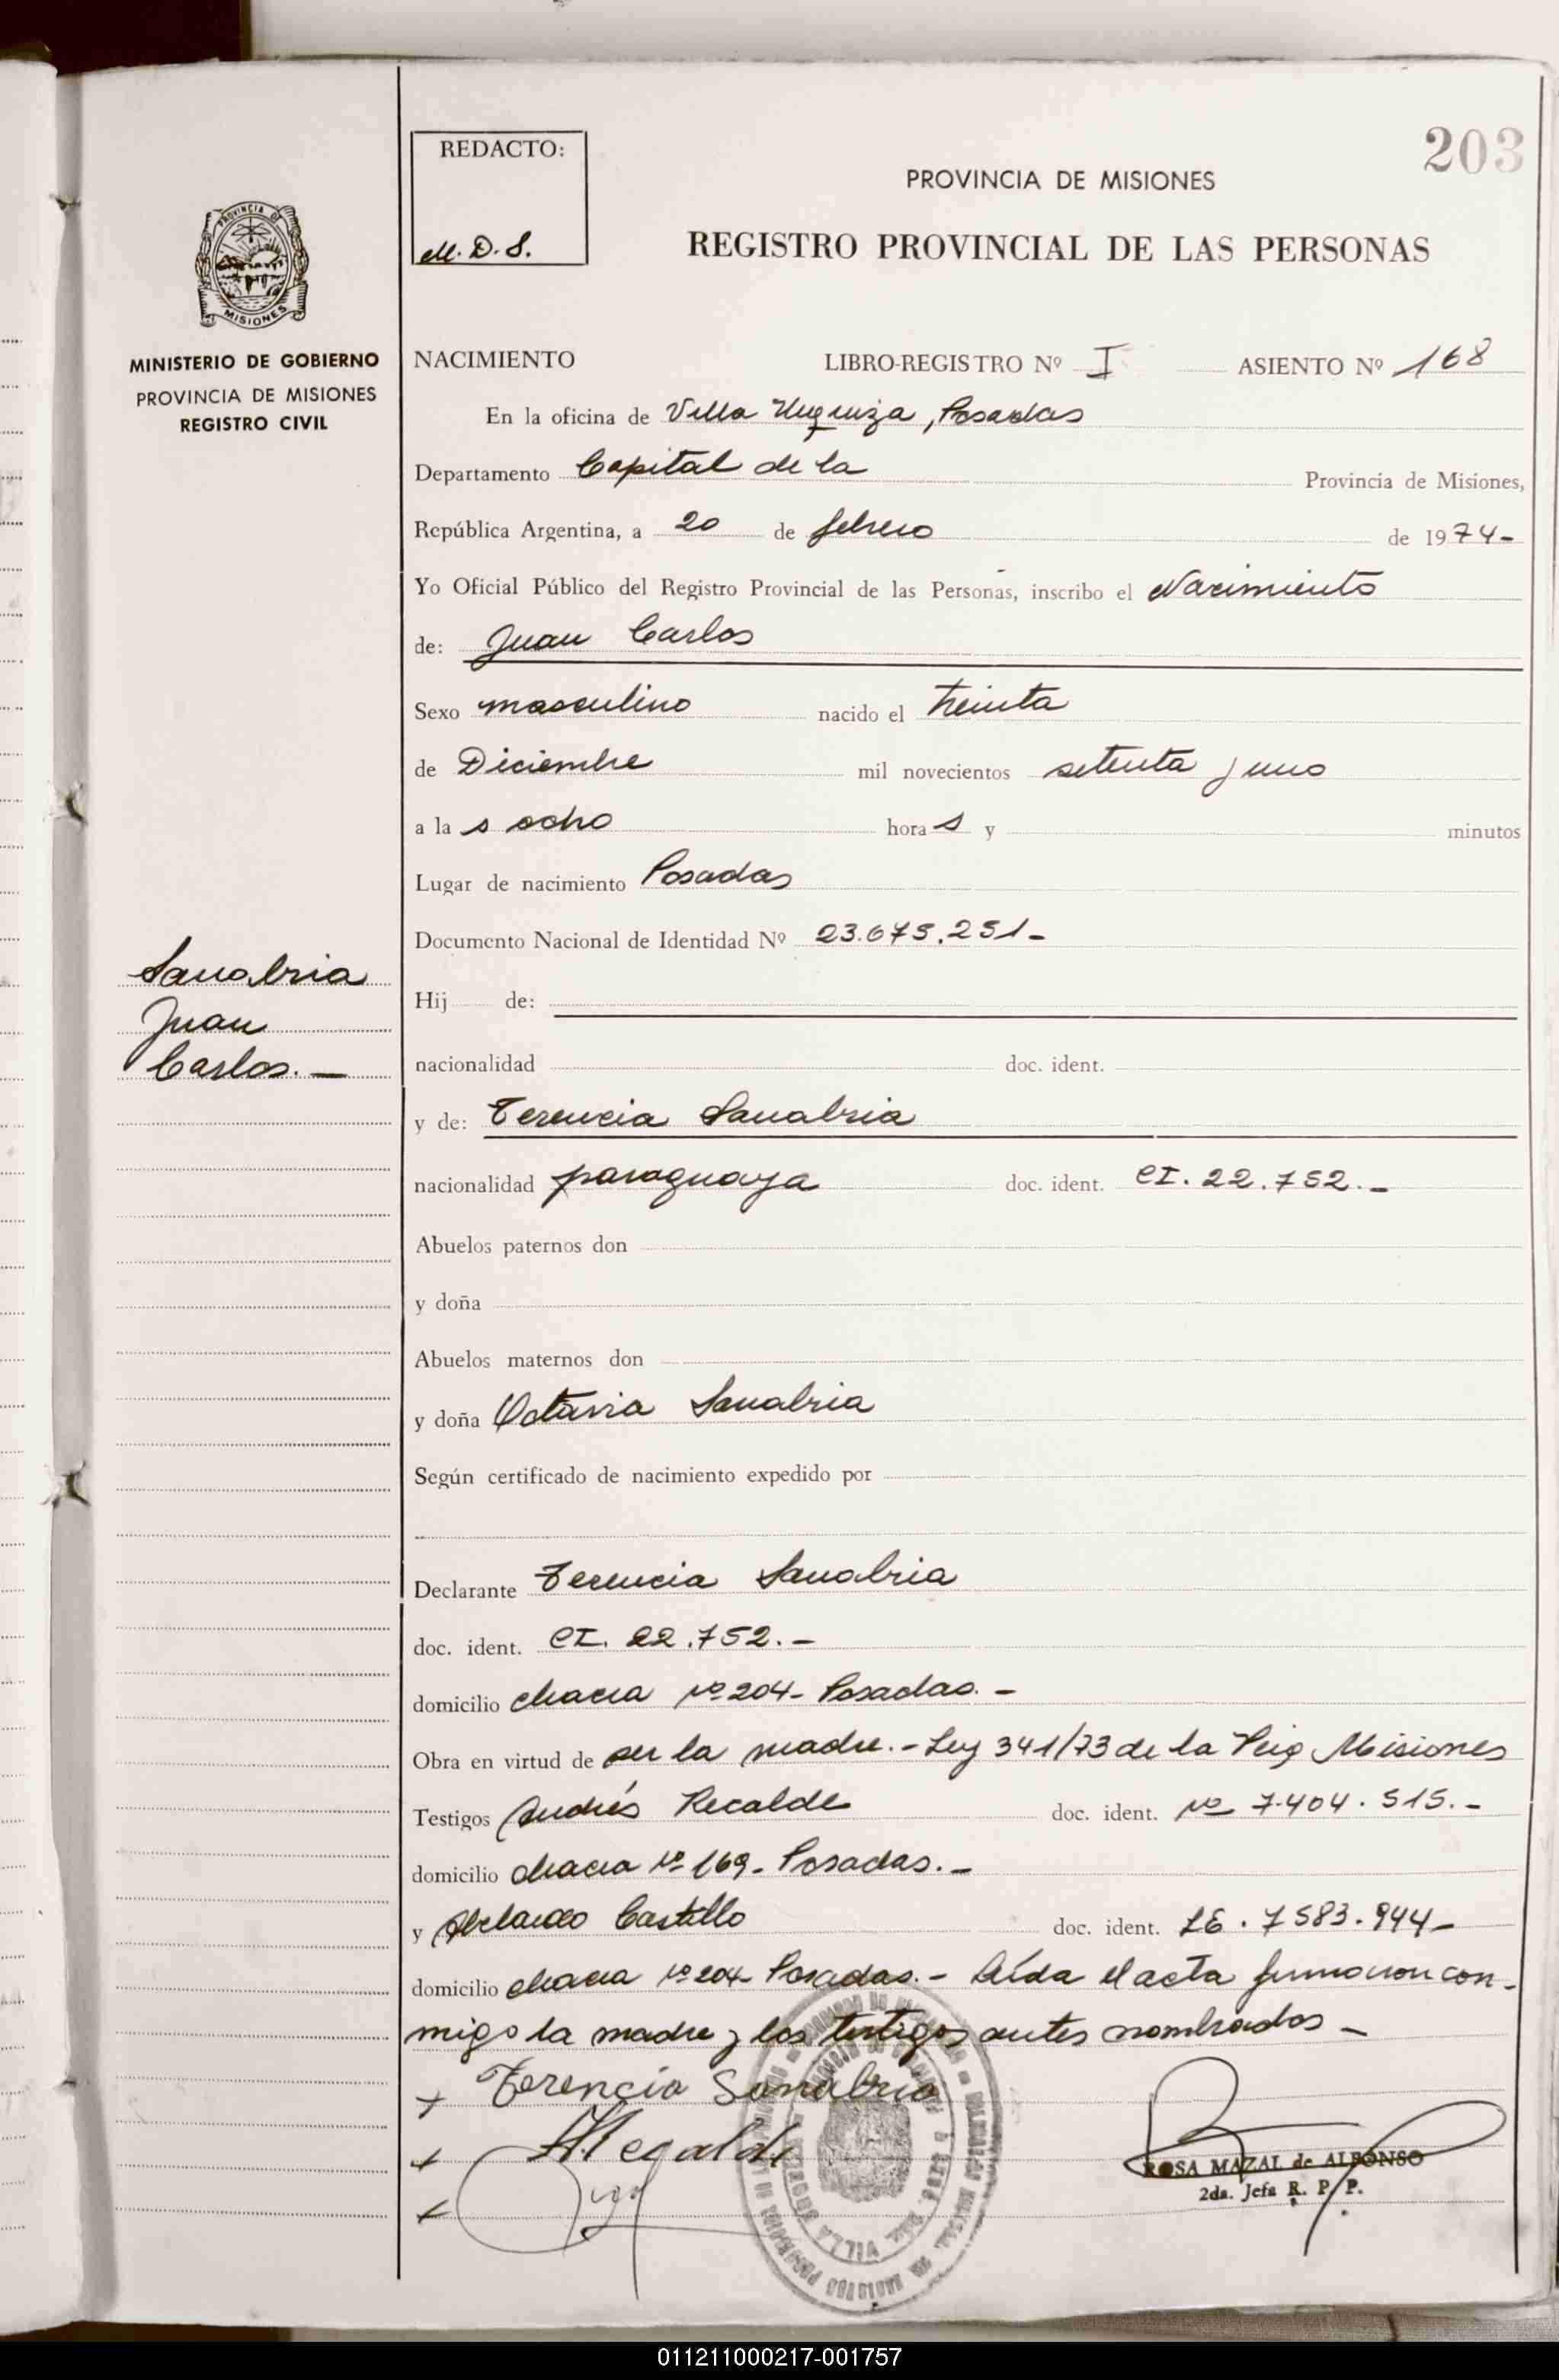 203
REDACTO:
M. D. S.
PROVINCIA DE MISIONES
REGISTRO PROVINCIAL DE LAS PERSONAS
PROVINCIA DE
MISIONES
MINISTERIO DE GOBIERNO
PROVINCIA DE MISIONES
REGISTRO CIVIL
NACIMIENTO LIBRO-REGISTRO Nº I ASIENTO Nº 168
En la oficina de Villa Urquiza, Posadas
Departamento Capital de la Provincia de Misiones,
República Argentina, a 20 de febrero de 1974-
Yo Oficial Público del Registro Provincial de las Personas, inscribo el Nacimiento
de: Juan Carlos
Sexo masculino nacido el treinta
de Diciembre mil novecientos setenta y uno
a la s ocho hora s y minutos
Lugar de nacimiento Posadas
Documento Nacional de Identidad Nº 23.675.251-
Sanabria
Juan
Carlos.—
Hij de:
nacionalidad doc. ident.
y de: Terencia Sanabria
nacionalidad paraguaya doc. ident. CI. 22.752.-
Abuelos paternos don
y doña
Abuelos maternos don
y doña Octavia Sanabria
Según certificado de nacimiento expedido por
Declarante Terencia Sanabria
doc. ident. CI. 22.752.-
domicilio chacra Nº 204- Posadas.-
Obra en virtud de ser la madre.- Ley 341/73 de la Misiones
Testigos Andrés Recalde doc. ident. Nº 7.404.515.-
domicilio chacra Nº 169- Posadas.-
y Abelardo Castillo doc. ident. LE. 7583.944-
domicilio chacra Nº 204- Posadas.- Leída el acta firmaron con-
migo la madre y los testigos antes nombrados-
Terencia Sanabria
ROSA MAZAL de ALFONSO
2da. Jefa R. P. P.
VILLA
011211000217-001757